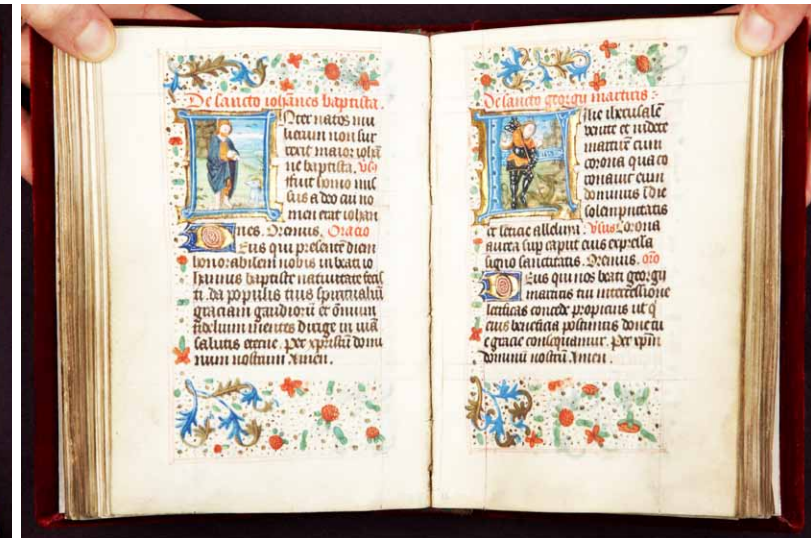 De sancto iohanes baptista.
Nter natos mu
lierum non sur
rexit maior iohā
ne baptista. v̄s
ffuit homo mis
sus a deo cui no
men erat iohan
nes. Oremus. Oracio
Eus qui presentē diem
honorabilem nobis in beati io
hannis baptiste natiuitate fecis
ti. da populis tuis spiritualiū
graciam gaudiorū et omnium
fidelium mentes dirige in uiā
salutis eterne. Per xpristū domi
num nostrum. Amen.
De sancto georgii martiris :
ilie iherusalē
uenite et uidete
martirē cum
corona qua co
ronauit eum
dominus i die
solempnitatis
et leticie alleluia. v̄sus Corona
aurea sup caput eius expressa
signo sanctitatis. Oremus. orō
Eus qui nos beati georgii
martiris tui intercessione
letificas concede propicius ut q̄
eius beneficia poscimus dono tu
e gracie consequamur. Per xpm̄
dominū nostrū. Amen.